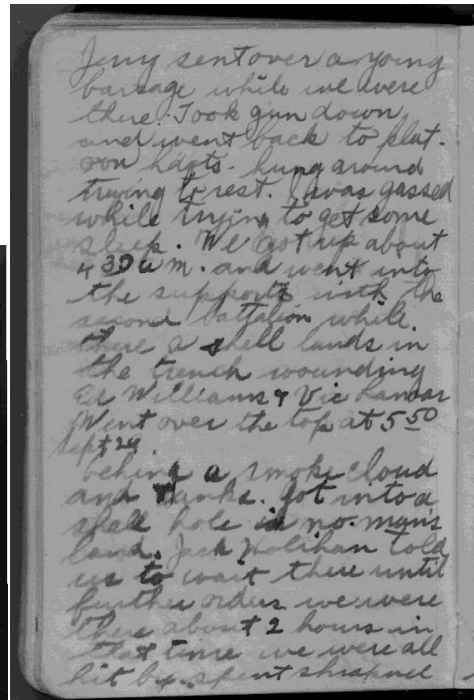 Jerry sent over a young
barrage while we were
there. Took gun down
and went back to plat-
oon hdqts. hung around
trying to rest. I was gassed
while trying to get some
sleep. We got up about
4 30 a m. and went into
the supports with the
second battalion while
there a shell lands in
the trench wounding
Ed Williams & Vic Lamar
Went over the top at 5 50
Sept 29
behind a smoke cloud
and tanks. Got into a
shell hole in no-man's
land. Jack Holihan told
us to wait there until
further orders we were
there about 2 hours in
that time we were all
hit by spent shrapnel